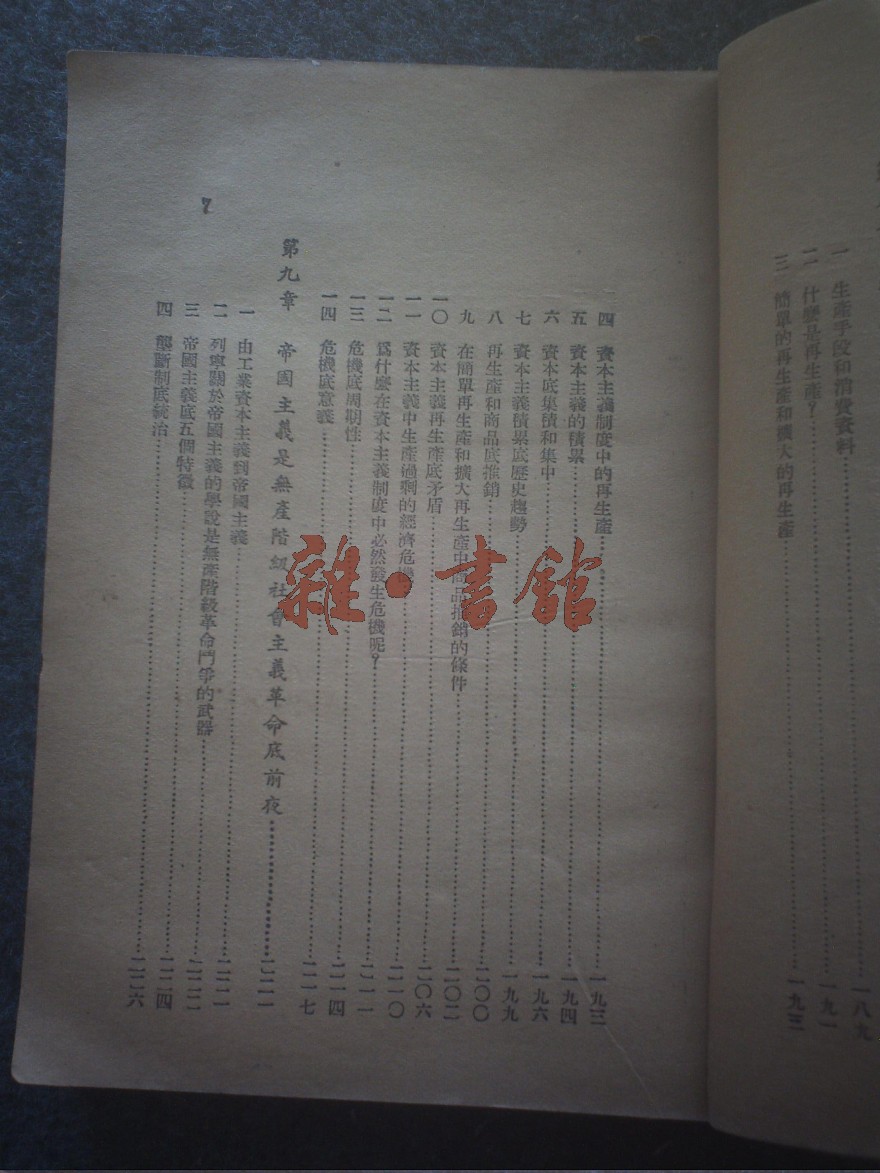 一 生產手段和消費資料……一八九
二 什麼是再生產？……一九一
三 簡單的再生產和擴大的再生產……一九三
四 資本主義制度中的再生產……一九三
五 資本主義的積累……一九四
六 資本底集積和集中……一九六
七 資本主義積累底歷史趨勢……一九九
八 再生產和商品底推銷……二〇〇
九 在簡單再生產和擴大再生產中商品推銷的條件……二〇二
一〇 資本主義再生產底矛盾……二〇六
一一 資本主義中生產過剩的經濟危機……二一〇
一二 爲什麼在資本主義制度中必然發生危機呢？……二一一
一三 危機底周期性……二一四
一四 危機底意義……二一七
第九章 帝國主義是無產階級社會主義革命底前夜……二二一
一 由工業資本主義到帝國主義……二二一
二 列寧關於帝國主義的學說是無產階級革命鬥爭的武器……二二二
三 帝國主義底五個特徵……二二四
四 壟斷制底統治……二二六
7
雜·書館